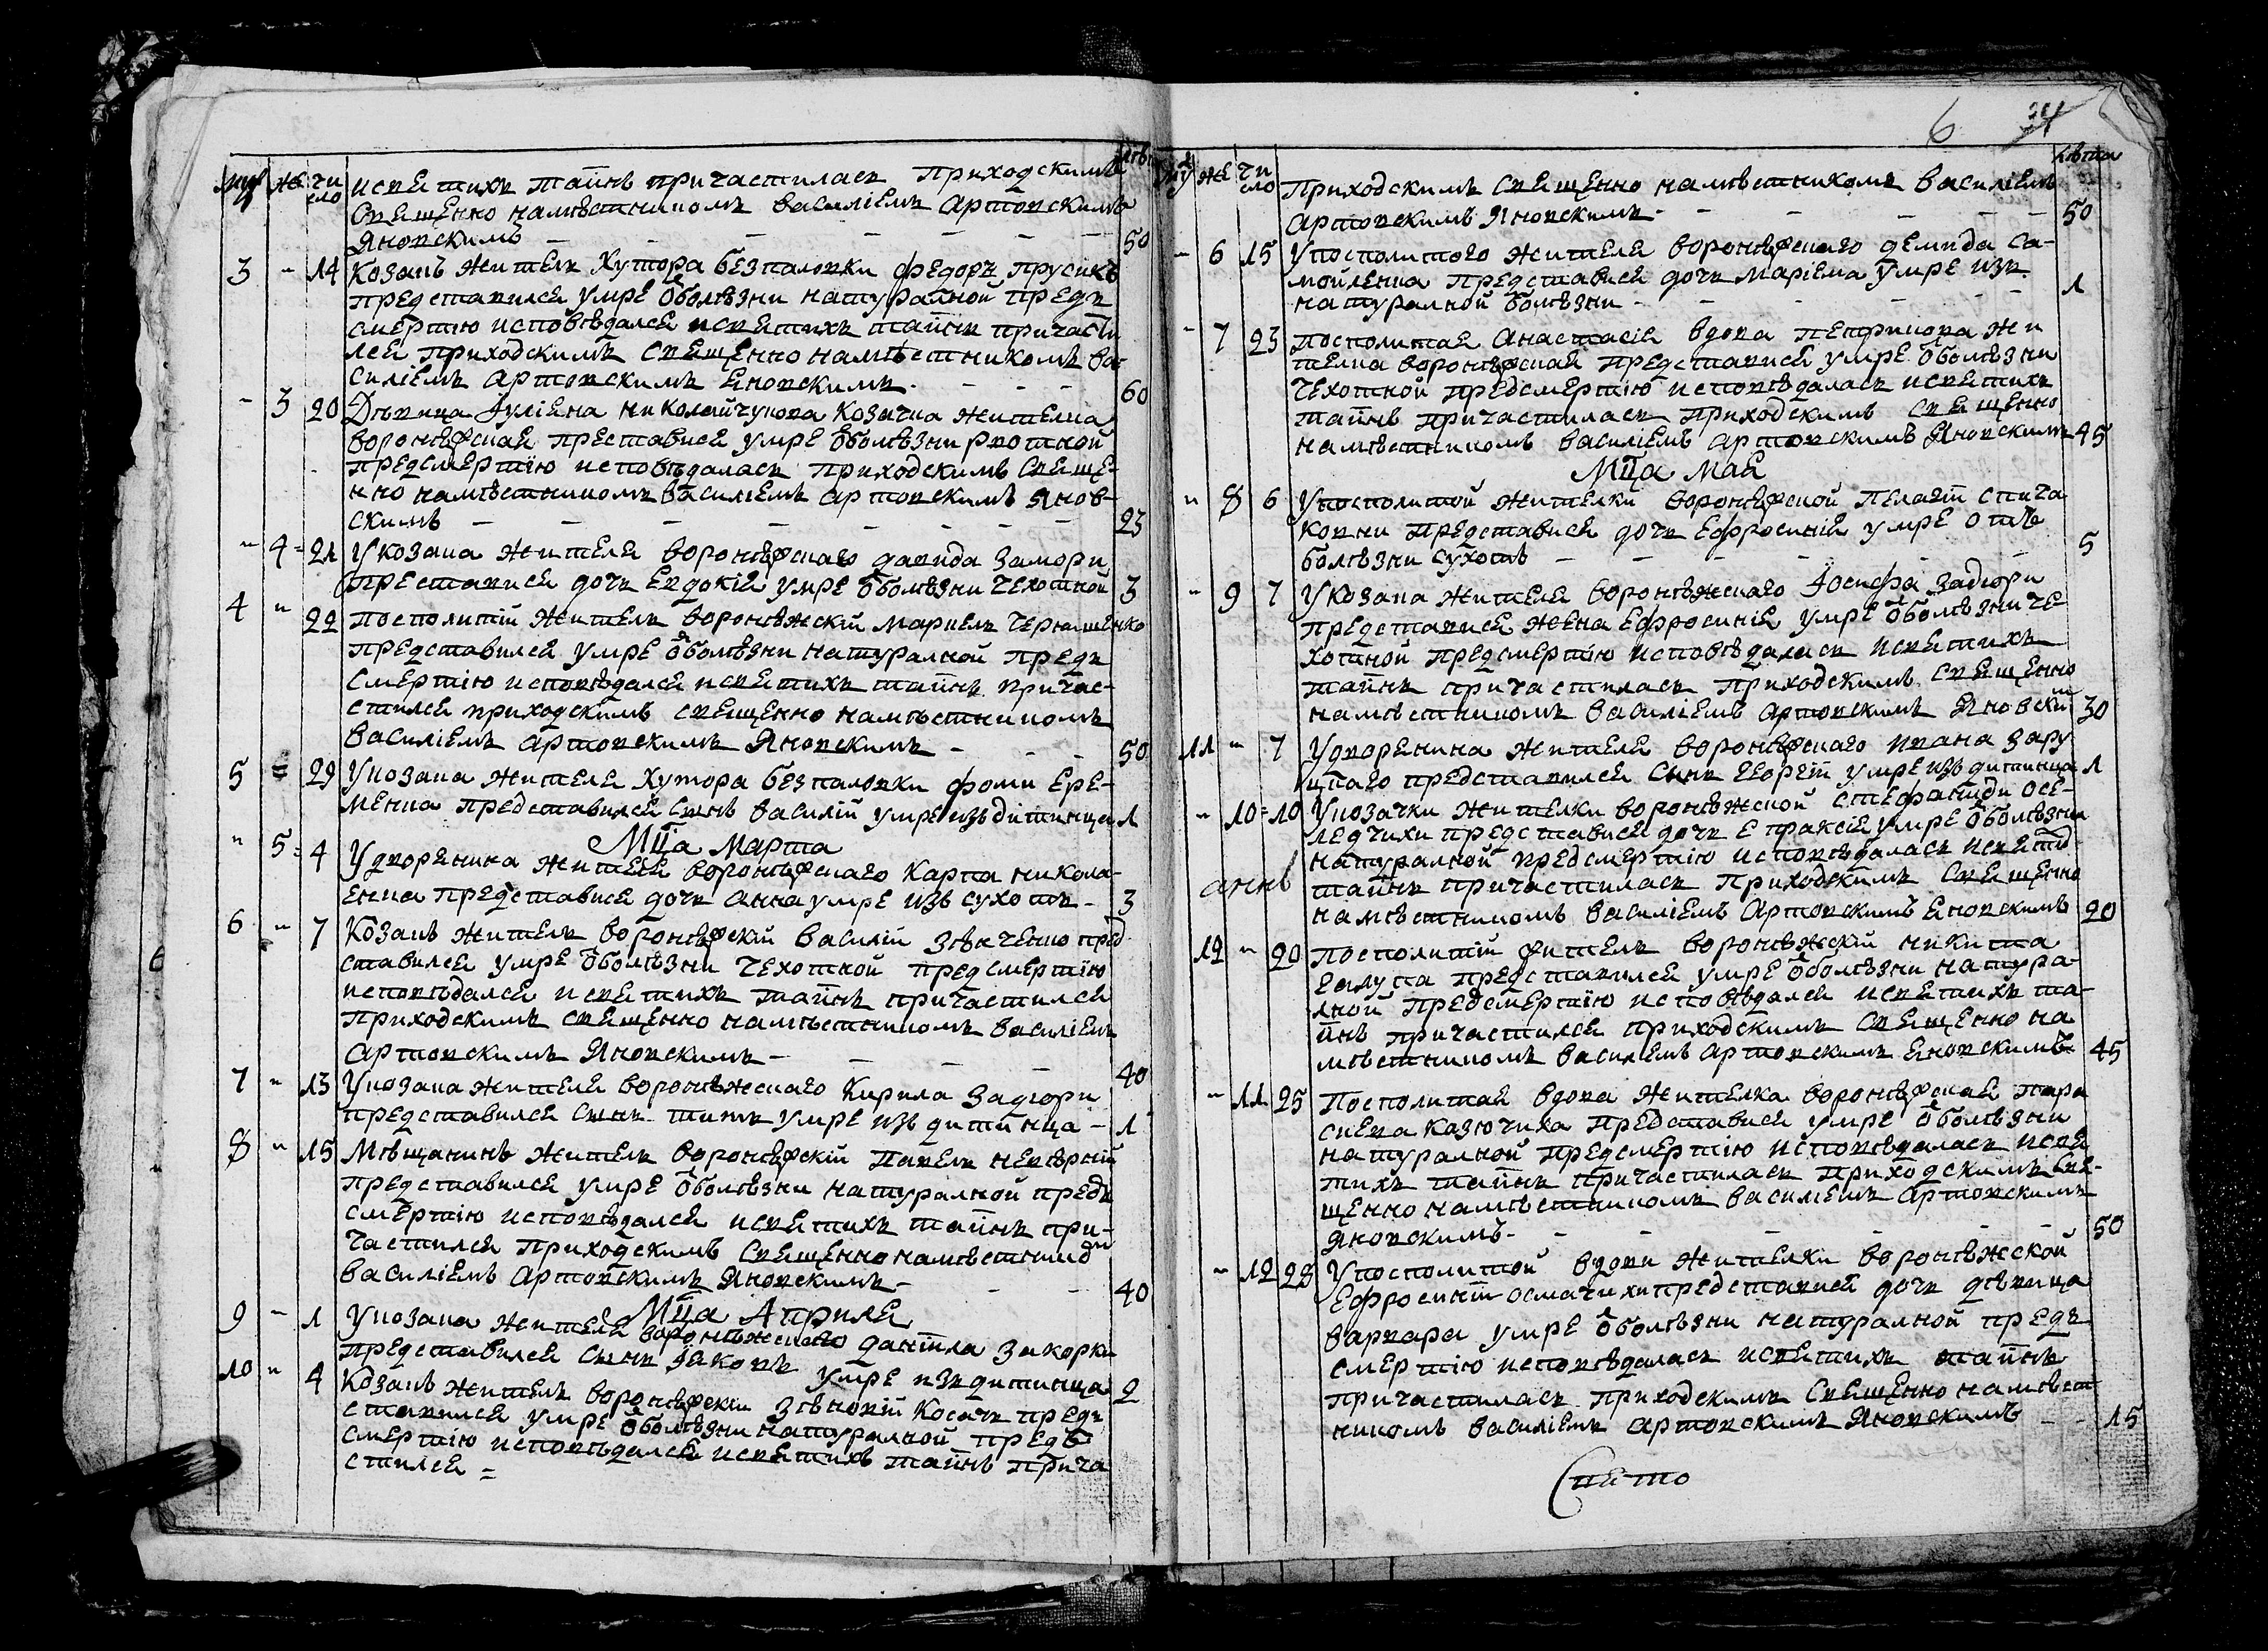 муж же чи сло лѣта
исвятихъ тайнъ причастиласъ приходскимъ
священно намѣстникомъ Василіемъ Артовскимъ
Яновскимъ - 50
3 - 14 Козакъ житель хутора безпаловки Федоръ Прусикъ
представился умре ѿ болѣзни натуралной предъ
смертію исповѣдался исвятихъ тайнъ причасти
лся приходскимъ священно намѣстникомъ Ва
силіемъ Артовскимъ Яновскимъ - 60
- 3 20 Дѣвица Іуліяна Николайчукова козачка жителка
воронѣжская преставися умре ѿ болѣзни рвотной
предсмертію исповѣдаласъ приходскимъ свяще-
нно намѣстникомъ Василіемъ Артовскимъ Янов-
скимъ - 23
" 4 21 У козака жителя воронѣжскаго Давида Замори
преставися дочь Евдокія умре ѿ болѣзни чехотной 3
4 " 22 Посполитій житель воронѣжскій Маркелъ Чернышенко
представился умре ѿ болѣзни натуралной предъ
смертію исповѣдался исвятихъ тайнъ причас-
тился приходскимъ священно намѣстникомъ
Василіемъ Артовскимъ Яновскимъ - 50
5 = 29 У козака жителя хутора безпаловки Фоми Ере-
менка представился синъ Василій умре изъ дитинца 1
Мца Марта
" 5 4 У дворянина жителя воронѣжскаго Карпа Никола-
енка представися дочь Анна умре изъ сухотъ - 3
6 " 7 Козакъ житель воронѣжскій Василій Зѣнченко пред
ставился умре ѿ болѣзни чехотной предсмертію
исповѣдался исвятихъ тайнъ причастился
приходскимъ священно намѣстникомъ Василіемъ
Артовскимъ Яновскимъ - 40
7 " 13 У козака жителя воронѣжскаго Кирила Задюри
представился синъ Титъ умре изъ дитинца - 1
8 " 15 Мѣщанинъ житель воронѣжскій Павелъ Невѣрній
представился умре ѿ болѣзни натуралной предъ
смертію исповѣдался исвятихъ тайнъ при-
частился приходскимъ священно намѣстником
Василіемъ Артовскимъ Яновскимъ - 40
Мца Априля
9 - 1 У козака жителя воронѣжскаго Даніила Закорки
представился синъ Іяковъ умре изъ дитинца 2
10 " 4 Козакъ житель воронѣжскій Зѣновій Косачъ пред
ставился умре ѿ болѣзни натуралной предъ
смертію исповѣдался исвятихъ тайнъ прича
стился =
6 34
муж же чи сло лѣта
Приходскимъ священно намѣстникомъ Василіемъ
Артовскимъ Яновскимъ - 50
- 6 15 У посполитого жителя воронѣжскаго Демида Са-
мойленка представися дочь Маріяна умре изъ
натуралной болѣзни - 1
- 7 23 Посполитая Анастасія вдова жи
телка воронѣжская представися умре ѿ болѣзни
чехотной предсмертію исповѣдаласъ исвятихъ
тайнъ причастиласъ приходскимъ священно
намѣстникомъ Василіемъ Артовскимъ Яновскимъ 45
Мца Мая
" 8 6 У посполитой жителки воронѣжской Пелагіи Спича
ковни представися дочь Ефросинія умре отъ
болѣзни сухотъ - 5
- 9 7 У козака жителя воронѣжскаго Іосифа Задюри
представися жена Ефросинія умре ѿ болѣзни че-
хотной предсмертію исповѣдаласъ исвятихъ
тайнъ причастиласъ приходскимъ священно
намѣстникомъ Василіемъ Артовскимъ Яновским 30
11 " 7 У дворянина жителя воронѣжскаго Ивана Зару
цкаго представился синъ Георгій умре изъ дитинца 1
" 10 = 10 У козачки жителки воронѣжской Стефаниди Осе-
ледчихи представися дочь Епраксія умре ѿ болѣзни
натуралной предсмертію исповѣдаласъ исвятих
тайнъ причастиласъ приходскимъ священно
намѣстникомъ Василіемъ Артовскимъ Яновскимъ 20
12 " 20 Посполитій житель воронѣжскій Никита
Галуша представился умре ѿ болѣзни натура-
лной предсмертію исповѣдался исвятихъ та-
йнъ причастился приходскимъ священно на
мѣстникомъ Василіемъ Артовскимъ Яновскимъ 45
" 11 25 Посполитая вдова жителка воронѣжская Пара
скева Казючиха представися умре ѿ болѣзни
натуралной предсмертію исповѣдаласъ исвя
тихъ тайнъ причастиласъ приходскимъ свя-
щенно намѣстникомъ Василіемъ Артовскимъ
Яновскимъ - 50
" 12 28 У посполитой вдови жителки воронѣжской
Ефросиніи Осмачихи представися дочь дѣвица
Варвара умре ѿ болѣзни натуралной предъ
смертію исповѣдаласъ исвятихъ тайнъ
причастиласъ приходскимъ священно намѣст
никомъ Василіемъ Артовскимъ Яновскимъ - 15